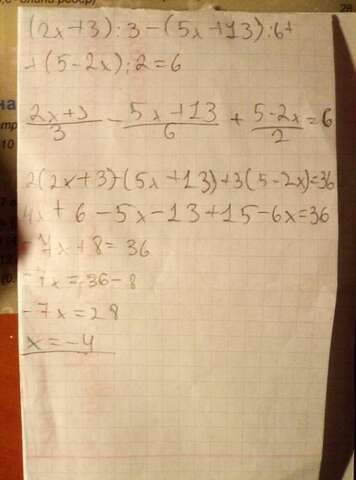 (2x+3):3-(5x+13):6+
+(5-2x):2=6
2x+3/3 - 5x+13/6 + 5-2x/2 = 6
2(2x+3)-(5x+13)+3(5-2x)=36
4x+6-5x-13+15-6x=36
-7x+8=36
-7x=36-8
-7x=28
x=-4
28
10